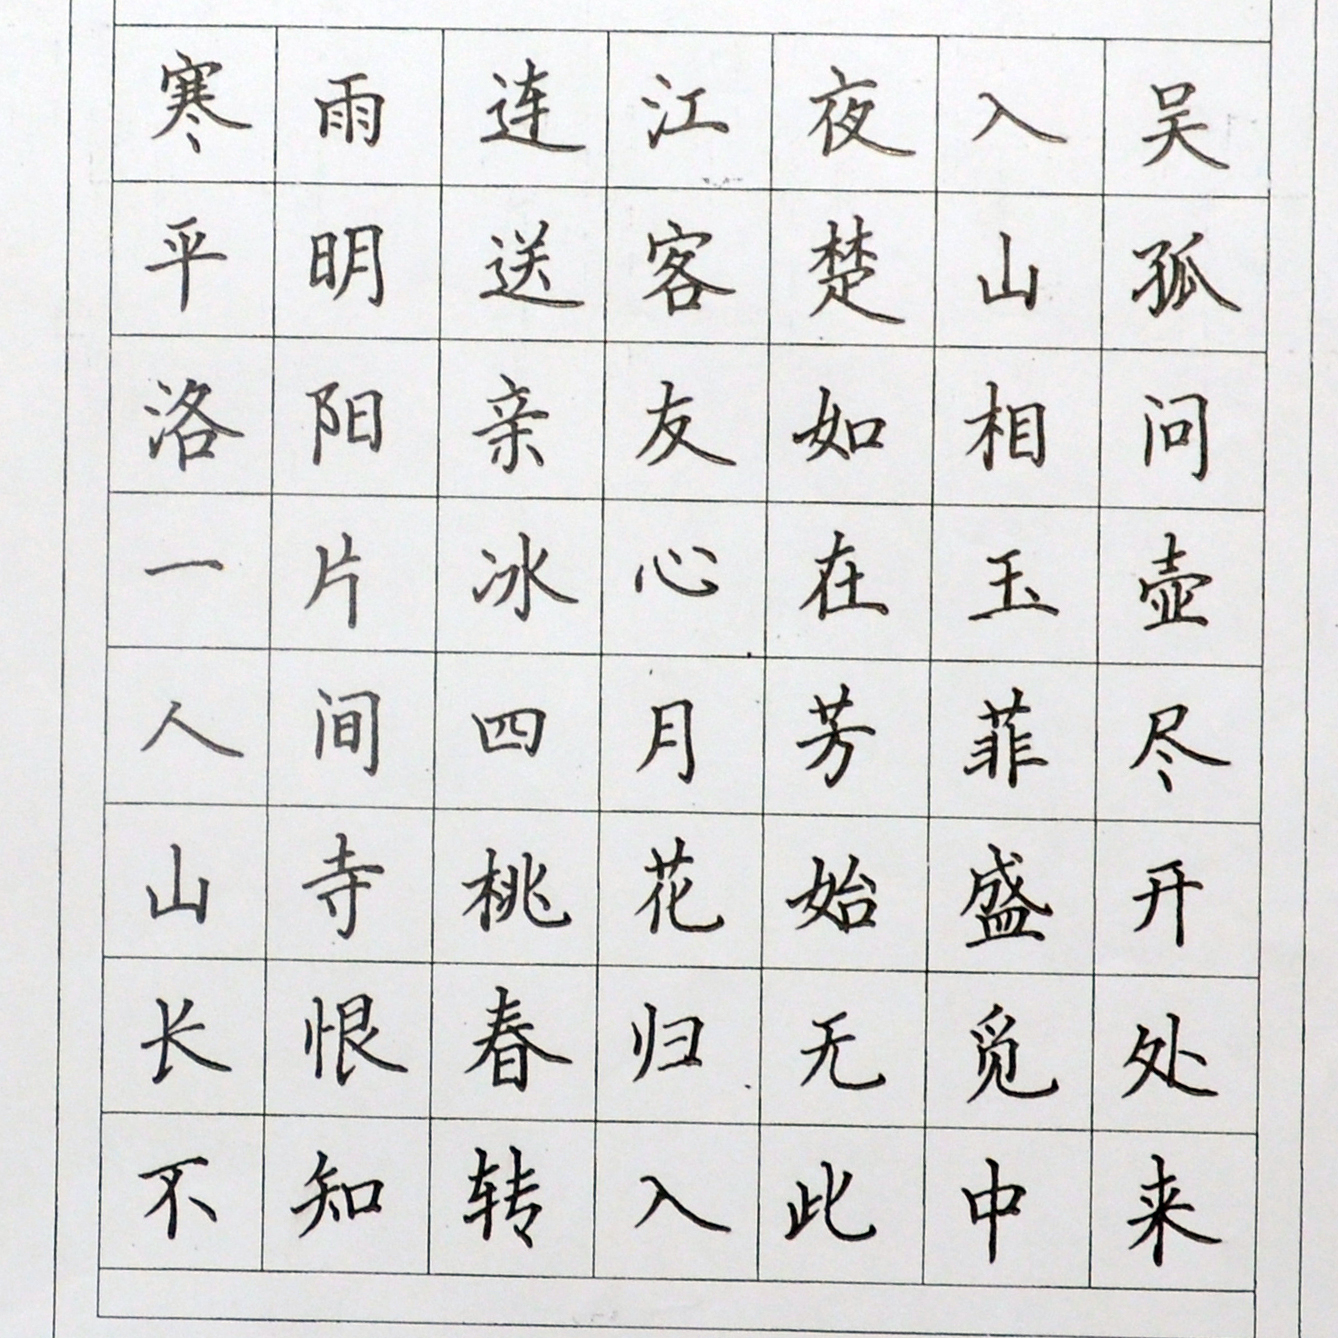 寒雨连江夜入吴
平明送客楚山孤
洛阳亲友如相问
一片冰心在玉壶
人间四月芳菲尽
山寺桃花始盛开
长恨春归无觅处
不知转入此中来